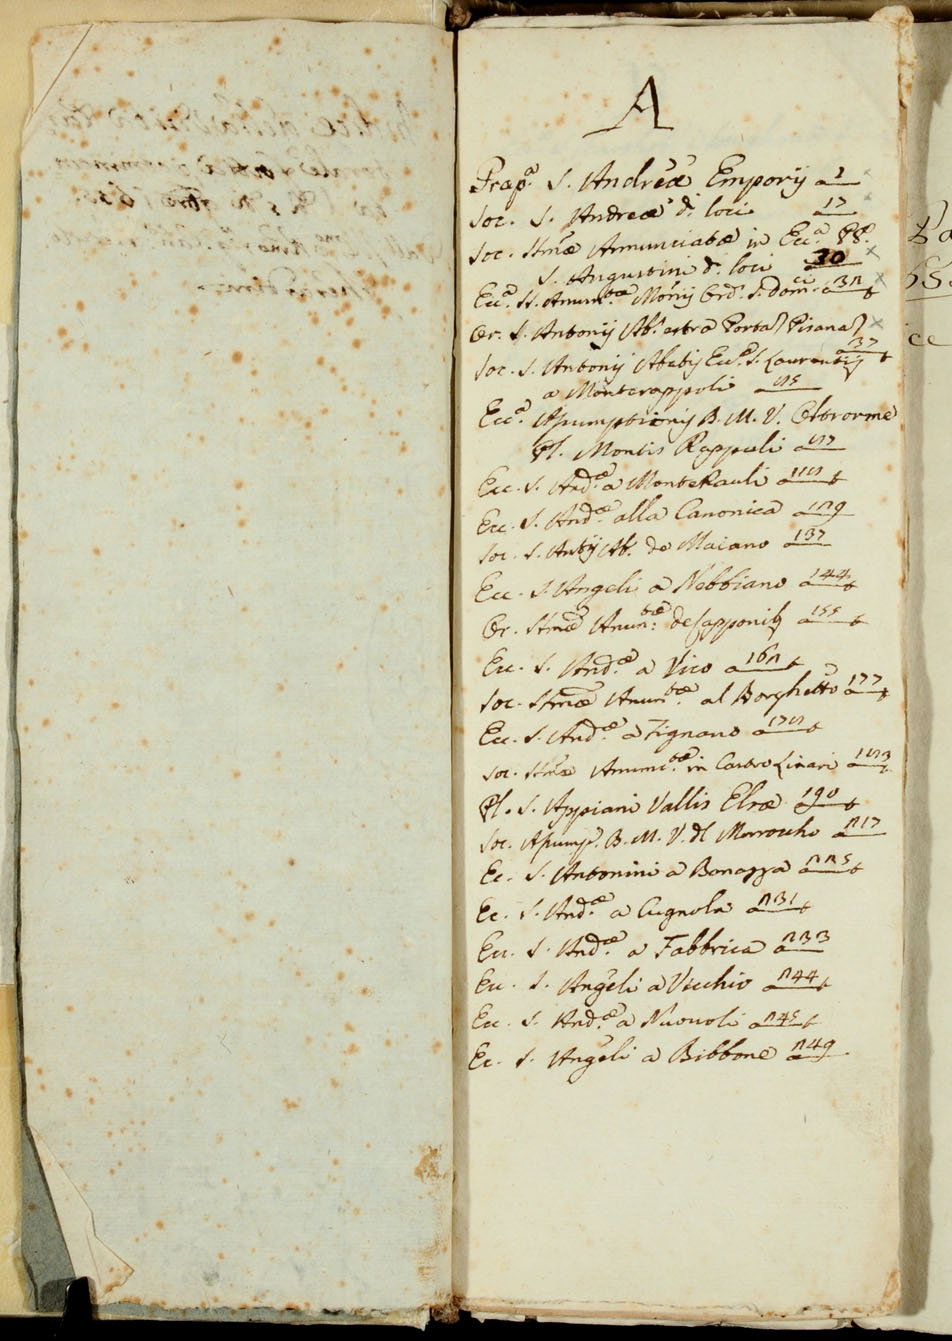 A
Prapª. S. Andreæ Emporij a 1
Soc. S. Andreæ d. loci 17
Soc. SSmæ Annunciatæ in Eccª. PP.
S. Augustini d. loci 30
Eccª. SS. Anun.tæ Monij Ord. S. Domci a 32
Or. S. Antonij Ab. extra Porta Pisana
37
Soc. S. Antonij Abatis Ecc. S. Laurentij
a Monterappoli 85
Eccª. Assumptionis B. M. V. Oltrorme
Pl. Montis Rappuli a 87
Ecc. S. Andæ a Monte Pauli a 118
Ecc. S. Andæ alla Canonica a 129
Soc. S. Antij Ab. de Maiano a 137
Ecc. S. Angeli a Nebbiano a 144
Or. SSmæ Anun:tæ de Capponib a 155
Ecc. S. Andæ a Vico a 162
Soc. SSmæ Anun:tæ al Borghetto a 177
Ecc. S. Andæ a Tignano a 178
Soc. SSmæ Annunc.tæ in Castro Linari a 183
Pl. S. Appiani Vallis Elsæ a 190
Soc. Assump. B. M. V. del Morrocho a 217
Ec. S. Antonini a Bonazza a 225
Ec. S. Andæ a Cugnola a 231
Ecc. S. Andæ a Fabbrica a 233
Ecc. S. Angeli a Vicchio a 244
Ecc. S. Andæ a Nuovoli a 245
Ec. S. Angeli a Bibbone a 249